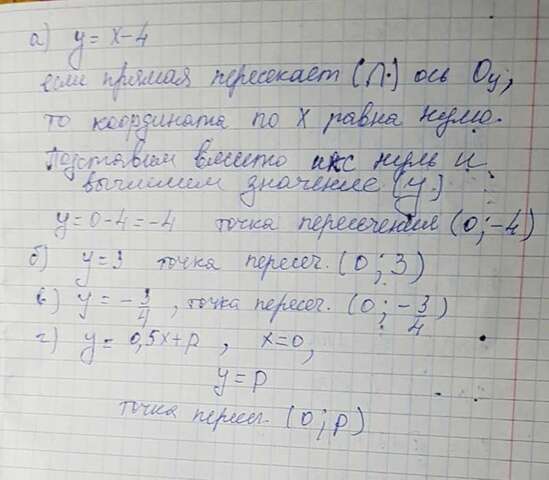 а) y = x - 4
если прямая пересекает (Л.) ось Oy,
то координата по X равна нулю.
Подставим вместо икс нуль и
вычислим значение (y.)
y = 0 - 4 = -4 точка пересечения (0; -4)
б) y = 3 точка пересеч. (0; 3)
в) y = -3/4, точка пересеч. (0; -3/4)
г) y = 0,5x + p, x = 0,
y = p
точка пересеч. (0; p)